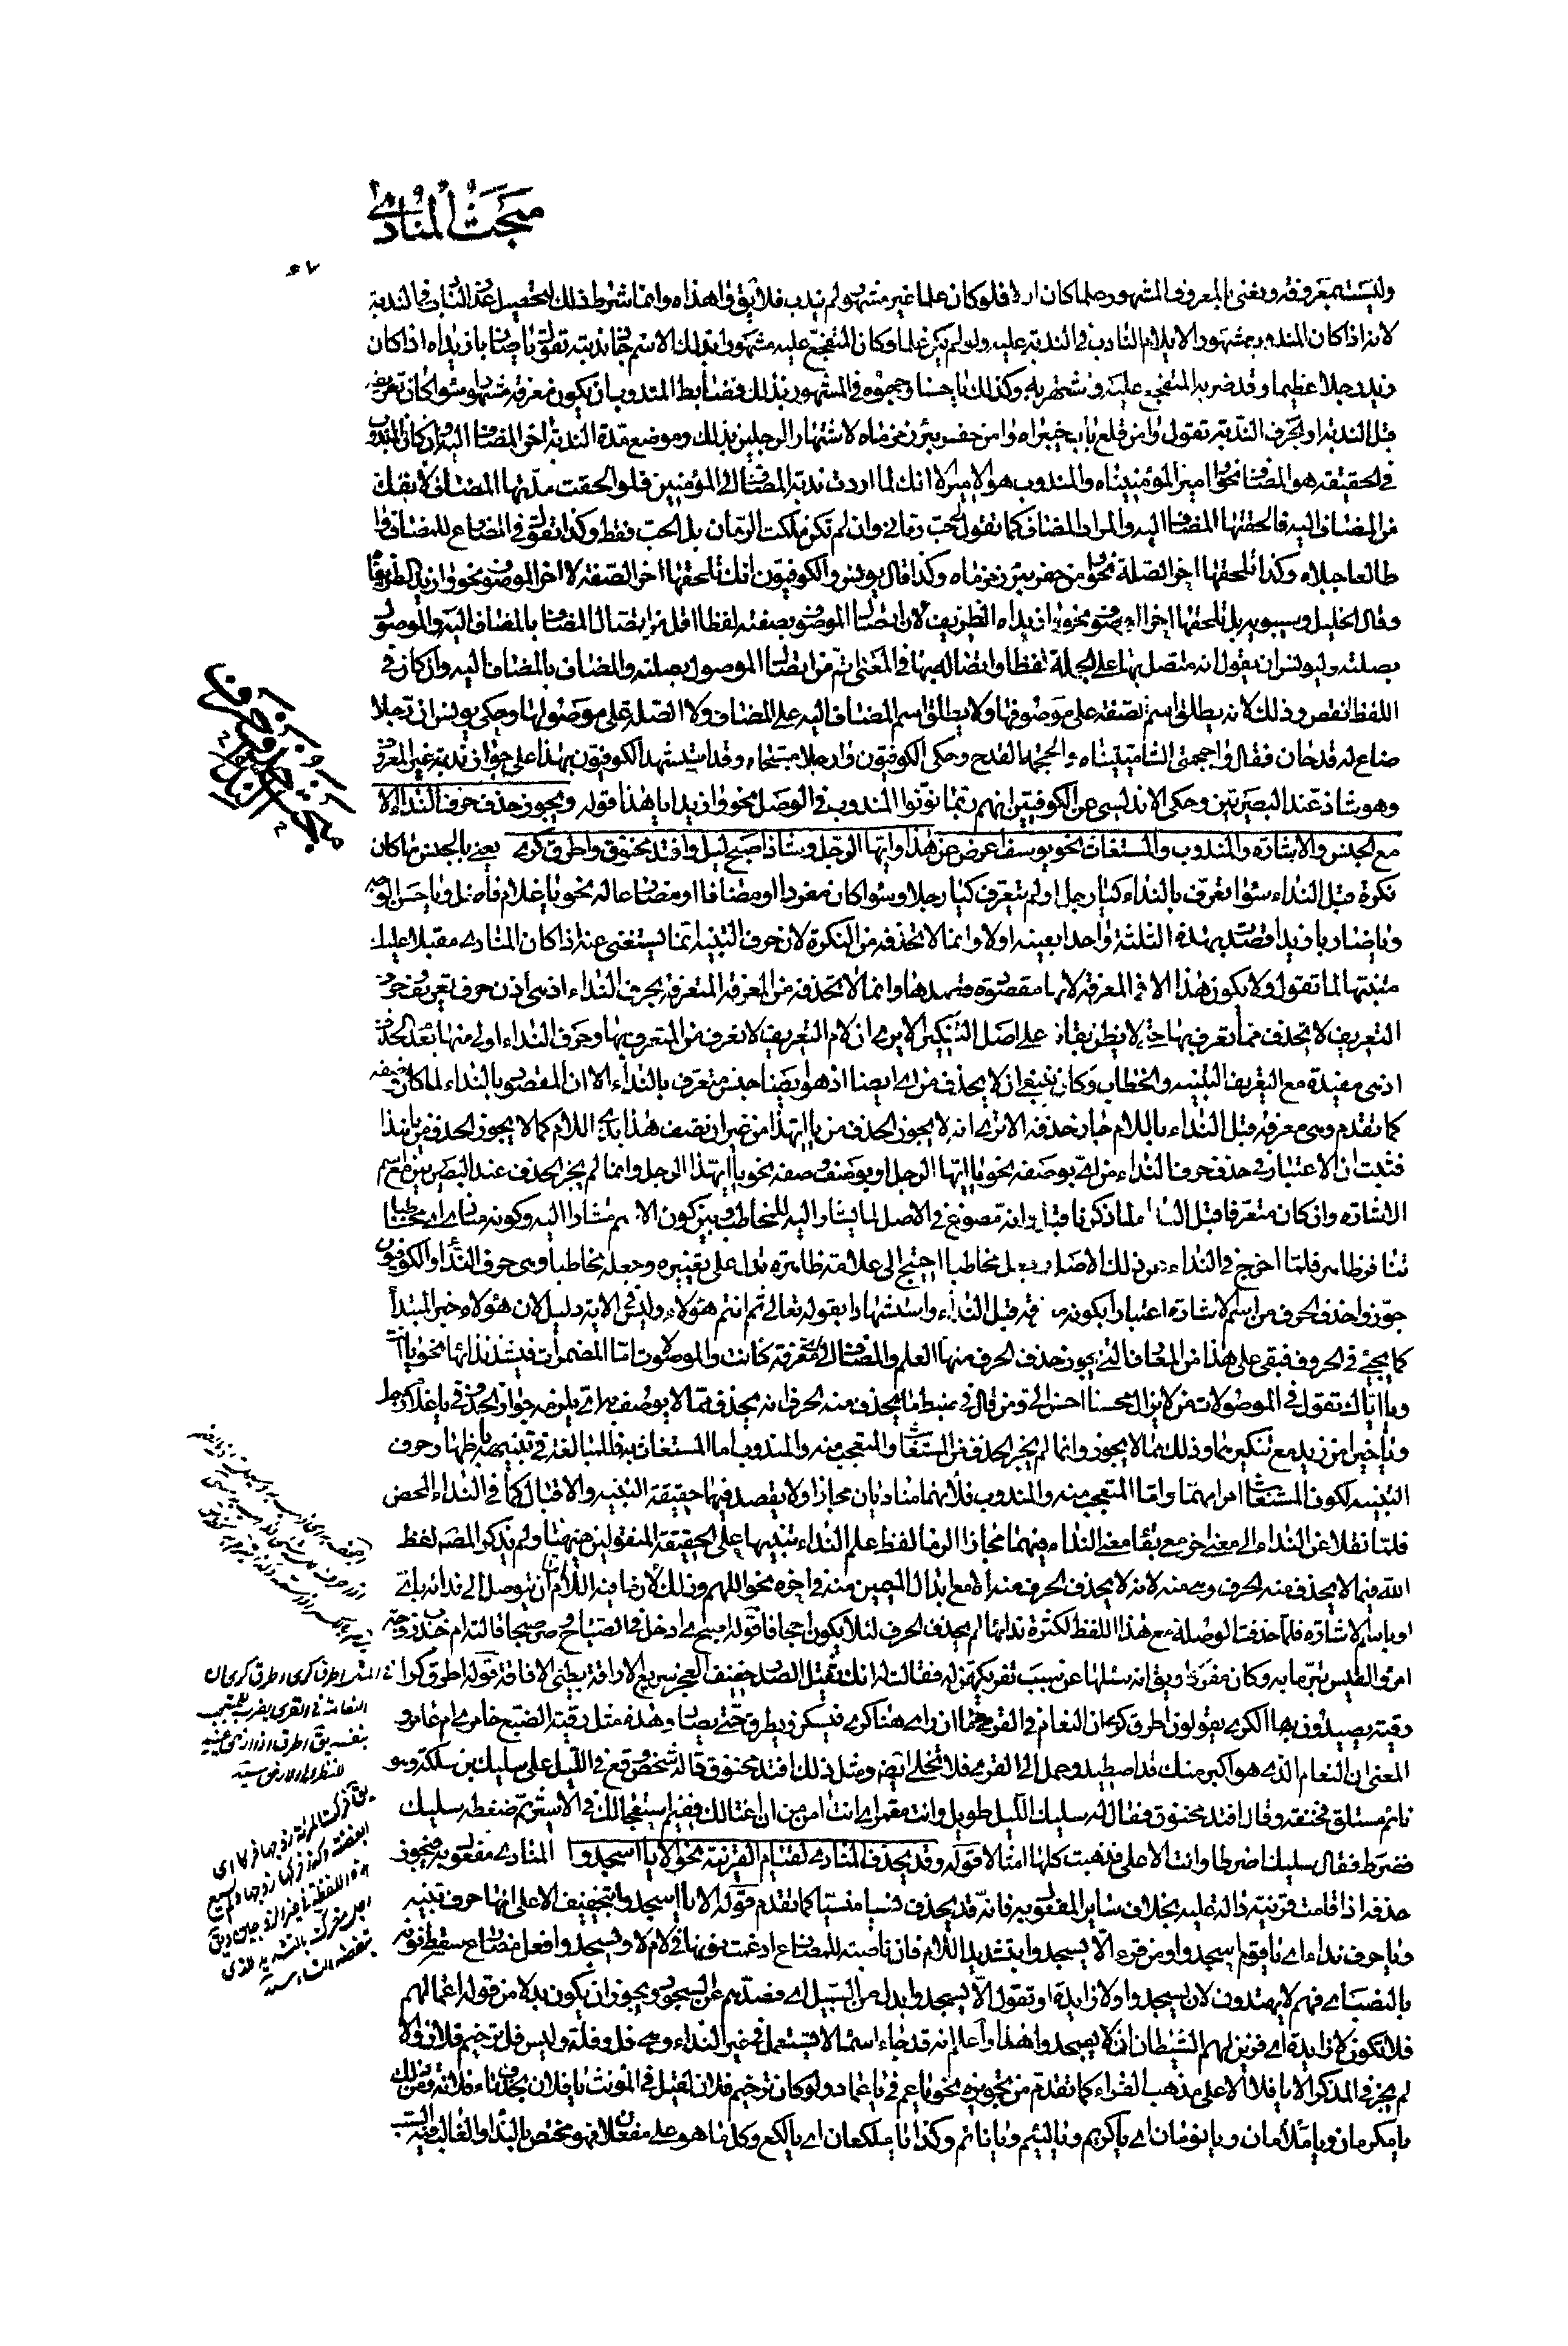 مبحث المنادى
٤٧
وليست بمعرفة ويعنى بالمعروف المشهور علما كان او لا فلو كان علما غير مشهور لم يندب فلا يق وا هذاه وانما شرط ذلك ليحصيل عذر النادب فى الندبة
لانه اذا كان المندوب مشهورا لا يلام النادب فى الندبة عليه ولو لم يكن علما وكان المتفجع عليه مشهورا بذلك الاسم جاز ندبته تقول يا ضاربا زيداه اذا كان
زيد رجلا عظيما وقد ضربه المتفجع عليه واشتهر به وكذلك يا حسنا وجهوه فى المشهور بذلك فضابط المندوب ان يكون معرفة مشهورا سواء كان تعريفه
قبل الندبة او بحرف الندبة تقول وا من قلع باب خيبراه وا من حفر بئر زمزماه لاشتهار الرجلين بذلك وموضع مدة الندبة اخر المضاف اليه وان كان المندوب
فى الحقيقة هو المضاف نحو وا امير المؤمنيناه والمندوب هو الامير لا انك لما اردت ندبة المضاف الى المؤمنين فلو الحقت مدتها المضاف لانفك
من المضاف اليه فالحقتها المضاف اليه والمراد المضاف كما تقول حب رمانى وان لم تكن ملكت الرمان بل الحب فقط وكذا تقول فى المضارع للمضاف وا
طالعا جبلاه وكذا تلحقها اخر الصلة نحو وا من حفر بئر زمزماه وكذا قال يونس والكوفيون انك تلحقها اخر الصفة لا اخر الموصوف نحو وا زيد الظريفاه
وقال الخليل وسيبويه بل تلحقها اخر الموصوف نحو وا زيداه الظريف لان اتصال الموصوف بصفته لفظا اقل من اتصال المضاف بالمضاف اليه والموصول
بصلته وليونس ان يقول انه متصل بها على الجملة لفظا واتصاله بها فى المعنى اتم من اتصال الموصول بصلته والمضاف بالمضاف اليه وان كان فى
اللفظ انقص وذلك لانه يطلق اسم الصفة على موصوفها ولا يطلق اسم المضاف اليه على المضاف ولا الصلة على موصولها وحكى يونس ان رجلا
ضاع له قدحان فقال وا جمجمتى الشاميتيناه والجمجمة القدح وحكى الكوفيون وا رجلا مسجاه وقد استشهد الكوفيون بهذا على جواز ندبة غير المعرف
وهو شاذ عند البصريين وحكى الاندلسى عن الكوفيين انهم ربما نونوا المندوب فى الوصل نحو وا زيدا يا هذا قوله ويجوز حذف حرف النداء الا
مع الجنس والاشارة والمندوب والمستغاث نحو يوسف اعرض عن هذا وايها الرجل وشذ اصبح ليل وافتد مخنوق واطرق كرى يعنى بالجنس ما كان
نكرة قبل النداء سواء تعرف بالنداء كيا رجل او لم يتعرف كيا رجلا وسواء كان مفردا او مضافا او مضارعا له نحو يا غلام فاضل ويا حسن الوجه
ويا ضاربا زيدا قصدت بهذه الثلثة واحدا بعينه او لا وانما لا تحذفه من النكرة لان حرف التنبيه انما يستغنى عنه اذا كان المنادى مقبلا عليك
متنبها لما تقول ولا يكون هذا الا فى المعرفة لانها مقصودة قصدها وانما لا تحذفه من المعرفة المتعرفة بحرف النداء اذ هى اذن حرف تعريف وحرف
التعريف لا تحذف مما تعرف بها حتى لا يظن بقاؤه على اصل التنكير الا يرى ان لام التعريف لا تحذف من المتعرف بها وحرف النداء اولى منها بعدم الحذف
اذ هى مفيدة مع التعريف التنبيه والخطاب وكان ينبغى ان لا يحذف من اى ايضا اذ هو ايضا جنس متعرف بالنداء الا ان المقصود بالنداء لما كان وصفه
كما تقدم وهى معرفة قبل النداء باللام جاز حذفه الا ترى انه لا يجوز الحذف من يا ايهذا من غير ان تصف هذا بذى اللام كما لا يجوز الحذف من يا هذا
فثبت ان الاعتبار فى حذف حرف النداء من اى بوصفه نحو يا ايها الرجل او بوصف وصفه نحو يا ايهذا الرجل وانما لم يجز الحذف عند البصريين مع اسم
الاشارة وان كان متعرفا قبل النداء لما ذكرنا قبل وانه موضوع فى الاصل لما يشار اليه للمخاطب وبين كون الاسم مشارا اليه وكونه منادى اى مخاطبا
تنافر ظاهر فلما اخرج فى النداء عن ذلك الاصل وجعل مخاطبا احتيج الى علامة ظاهرة تدل على تغييره وجعله مخاطبا وهى حرف النداء والكوفيون
جوزوا حذف الحرف من اسم الاشارة اعتبارا بكونه معرفة قبل النداء واستشهادا بقوله تعالى ثم انتم هؤلاء وليس فى الاية دليل لان هؤلاء خبر المبتدأ
كما يجئ فى الحروف فبقى على هذا من المعارف التى يجوز حذف الحرف منها العلم والمضاف الى اى معرفة كانت والموصولات اما المضمرات فيشذ نداؤها نحو يا انت
ويا اياك تقول فى الموصولات من لا يزال محسنا احسن الى ومن قال فى ضبط ما يحذف منه الحرف انه يحذف مما لا يوصف به اى يلزمه جواز الحذف فى يا غلام رجل
ويا خيرا من زيد مع تنكيرهما وذلك مما لا يجوز وانما لم يجز الحذف من المستغاث والمتعجب منه والمندوب اما المستغاث به فللمبالغة فى تنبيهه باظهار حرف
التنبيه لكون المستغاث له امرا مهما واما المتعجب منه والمندوب فلانهما مناديان مجازا ولا يقصد فيهما حقيقة التنبيه والاقبال كما فى النداء المحض
فلما نقلا عن النداء الى معنى اخر مع بقاء معنى النداء فيهما مجازا الزما لفظ علم النداء تنبيها على الحقيقة المنقولين هما منها ولم يذكر المصنف لفظ
الله فيما لا يحذف منه الحرف وهى منه لانه لا يحذف الحرف منه الا مع ابدال الميمين منه فى اخره نحو اللهم وذلك لان ما فيه اللام ان يتوصل الى ندائه باى
او باسم الاشارة فلما حذفت الوصلة مع هذا اللفظ لكثرة ندائها لم يحذف الحرف لئلا يكون اجحافا قوله اصبح اى ادخل فى الصباح وصر صبحا قالته ام جندب زوجة
امرئ القيس تبرما به وكان مفركا ويق انه سئلها عن سبب تفريكهن له فقالت له انك ثقيل الصدر خفيف العجز سريع الاراقة بطئ الافاقة قوله اطرق كرا
رقية يصيدون بها الكرى يقولون اطرق كرى ان النعام فى القرى ما ان ارى هنا كرى فيسكن ويطرق حتى يصاد وهذه مثل رقية الضبع خامرى ام عامر و
المعنى ان النعام الذى هو اكبر منك قد اصطيد وحمل الى القرى فلا تخلى ايضا ومثل ذلك افتد مخنوق قاله شخص وقع فى الليل على سليك بن سلكة وهو
نائم مستلق فخنقه وقال افتد مخنوق فقال له سليك الليل طويل وانت مقمر اى انت امن من ان اغتالك ففيم استعجالك فى الاسر ثم ضغطه سليك
فضرط فقال سليك اضرطا وانت الاعلى فذهبت كلها امثالا قوله وقد يحذف المنادى لقيام القرينة نحو الا يا اسجدوا المنادى مفعول به فيجوز
حذفه اذا قامت قرينة دالة عليه بخلاف سائر المفعول به فانه قد يحذف نسيا منسيا كما تقدم قوله الا يا اسجدوا بتخفيف الا على انها حرف تنبيه
ويا حرف نداء اى يا قوم اسجدوا ومن قرء الا يسجدوا بتشديد اللام فان ناصبة للمضارع ادغمت نونها فى لام لا ويسجدوا فعل مضارع سقط نونه
بالنصب اى فهم لا يهتدون لان يسجدوا ولا زايدة او تقول الا يسجدوا بدل من السبيل اى فصدهم عن السجود ويجوز ان يكون بدلا من قوله اعمالهم
فلا تكون لا زايدة اى فزين لهم الشيطان ان لا يسجدوا هذا واعلم انه قد جاء اسماء لا تستعمل فى غير النداء وهى فل وفلة وليس فل ترخيم فلان والا
لم يجز فى المذكر الا يا فلا الا على مذهب الفراء كما تقدم من تجويزه نحو يا عم فى يا عماد ولو كان ترخيم فلان لقيل فى المونث يا فلان بحذف تاء فلانة ومن ذلك
يا مكرمان ويا ملأمان ويا نومان اى يا كريم ويا لئيم ويا نائم وكذا يا ملكعان اى يا لكع وكل ما هو على مفعلان فهو مختص بالنداء والغالب فيه السب
مبحث جواز حذف حرف النداء
فى المثل اطرق كرى اطرق كرى ان
النعامة فى القرى يضرب للمعجب
بنفسه يق اطرق اذا ارخى عينيه